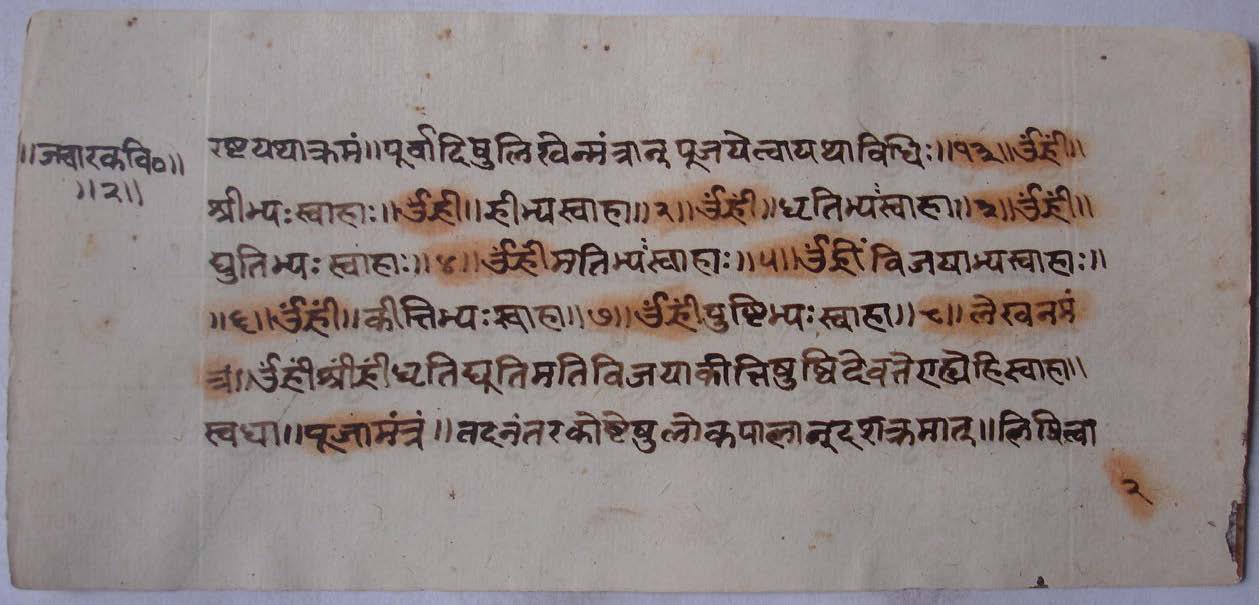 ॥जवारकवि०॥
॥२॥
रष्टयथाक्रमं॥पूर्वादिषुलिखेन्मंत्रान्पूजयेत्वायथाविधिः॥१३॥ॐह्रीं॥
श्रीभ्यःस्वाहाः॥ॐह्री॥ह्रीभ्यस्वाहा॥२॥ॐह्रीं॥धृतिभ्यंस्वाहा॥३॥ॐह्रीं॥
द्युतिभ्यःस्वाहाः॥४॥ॐह्रींमतिभ्यंस्वाहाः॥५॥ॐह्रींविजयाभ्यस्वाहाः॥
॥६॥ॐह्रीं॥कीर्त्तिभ्यःस्वाहा॥७॥ॐह्रींपुष्टिभ्यःस्वाहा॥८॥लेखनमं
त्र॥ॐह्रींश्रींह्रींधृतिद्युतिमतिविजयाकीर्त्तिषुदेवतेएह्येहिस्वाहा॥
स्वधा॥पूजामंत्रं॥तदनंतरकोष्टेषुलोकपालान्दशक्रमात्॥लिषित्वा
२